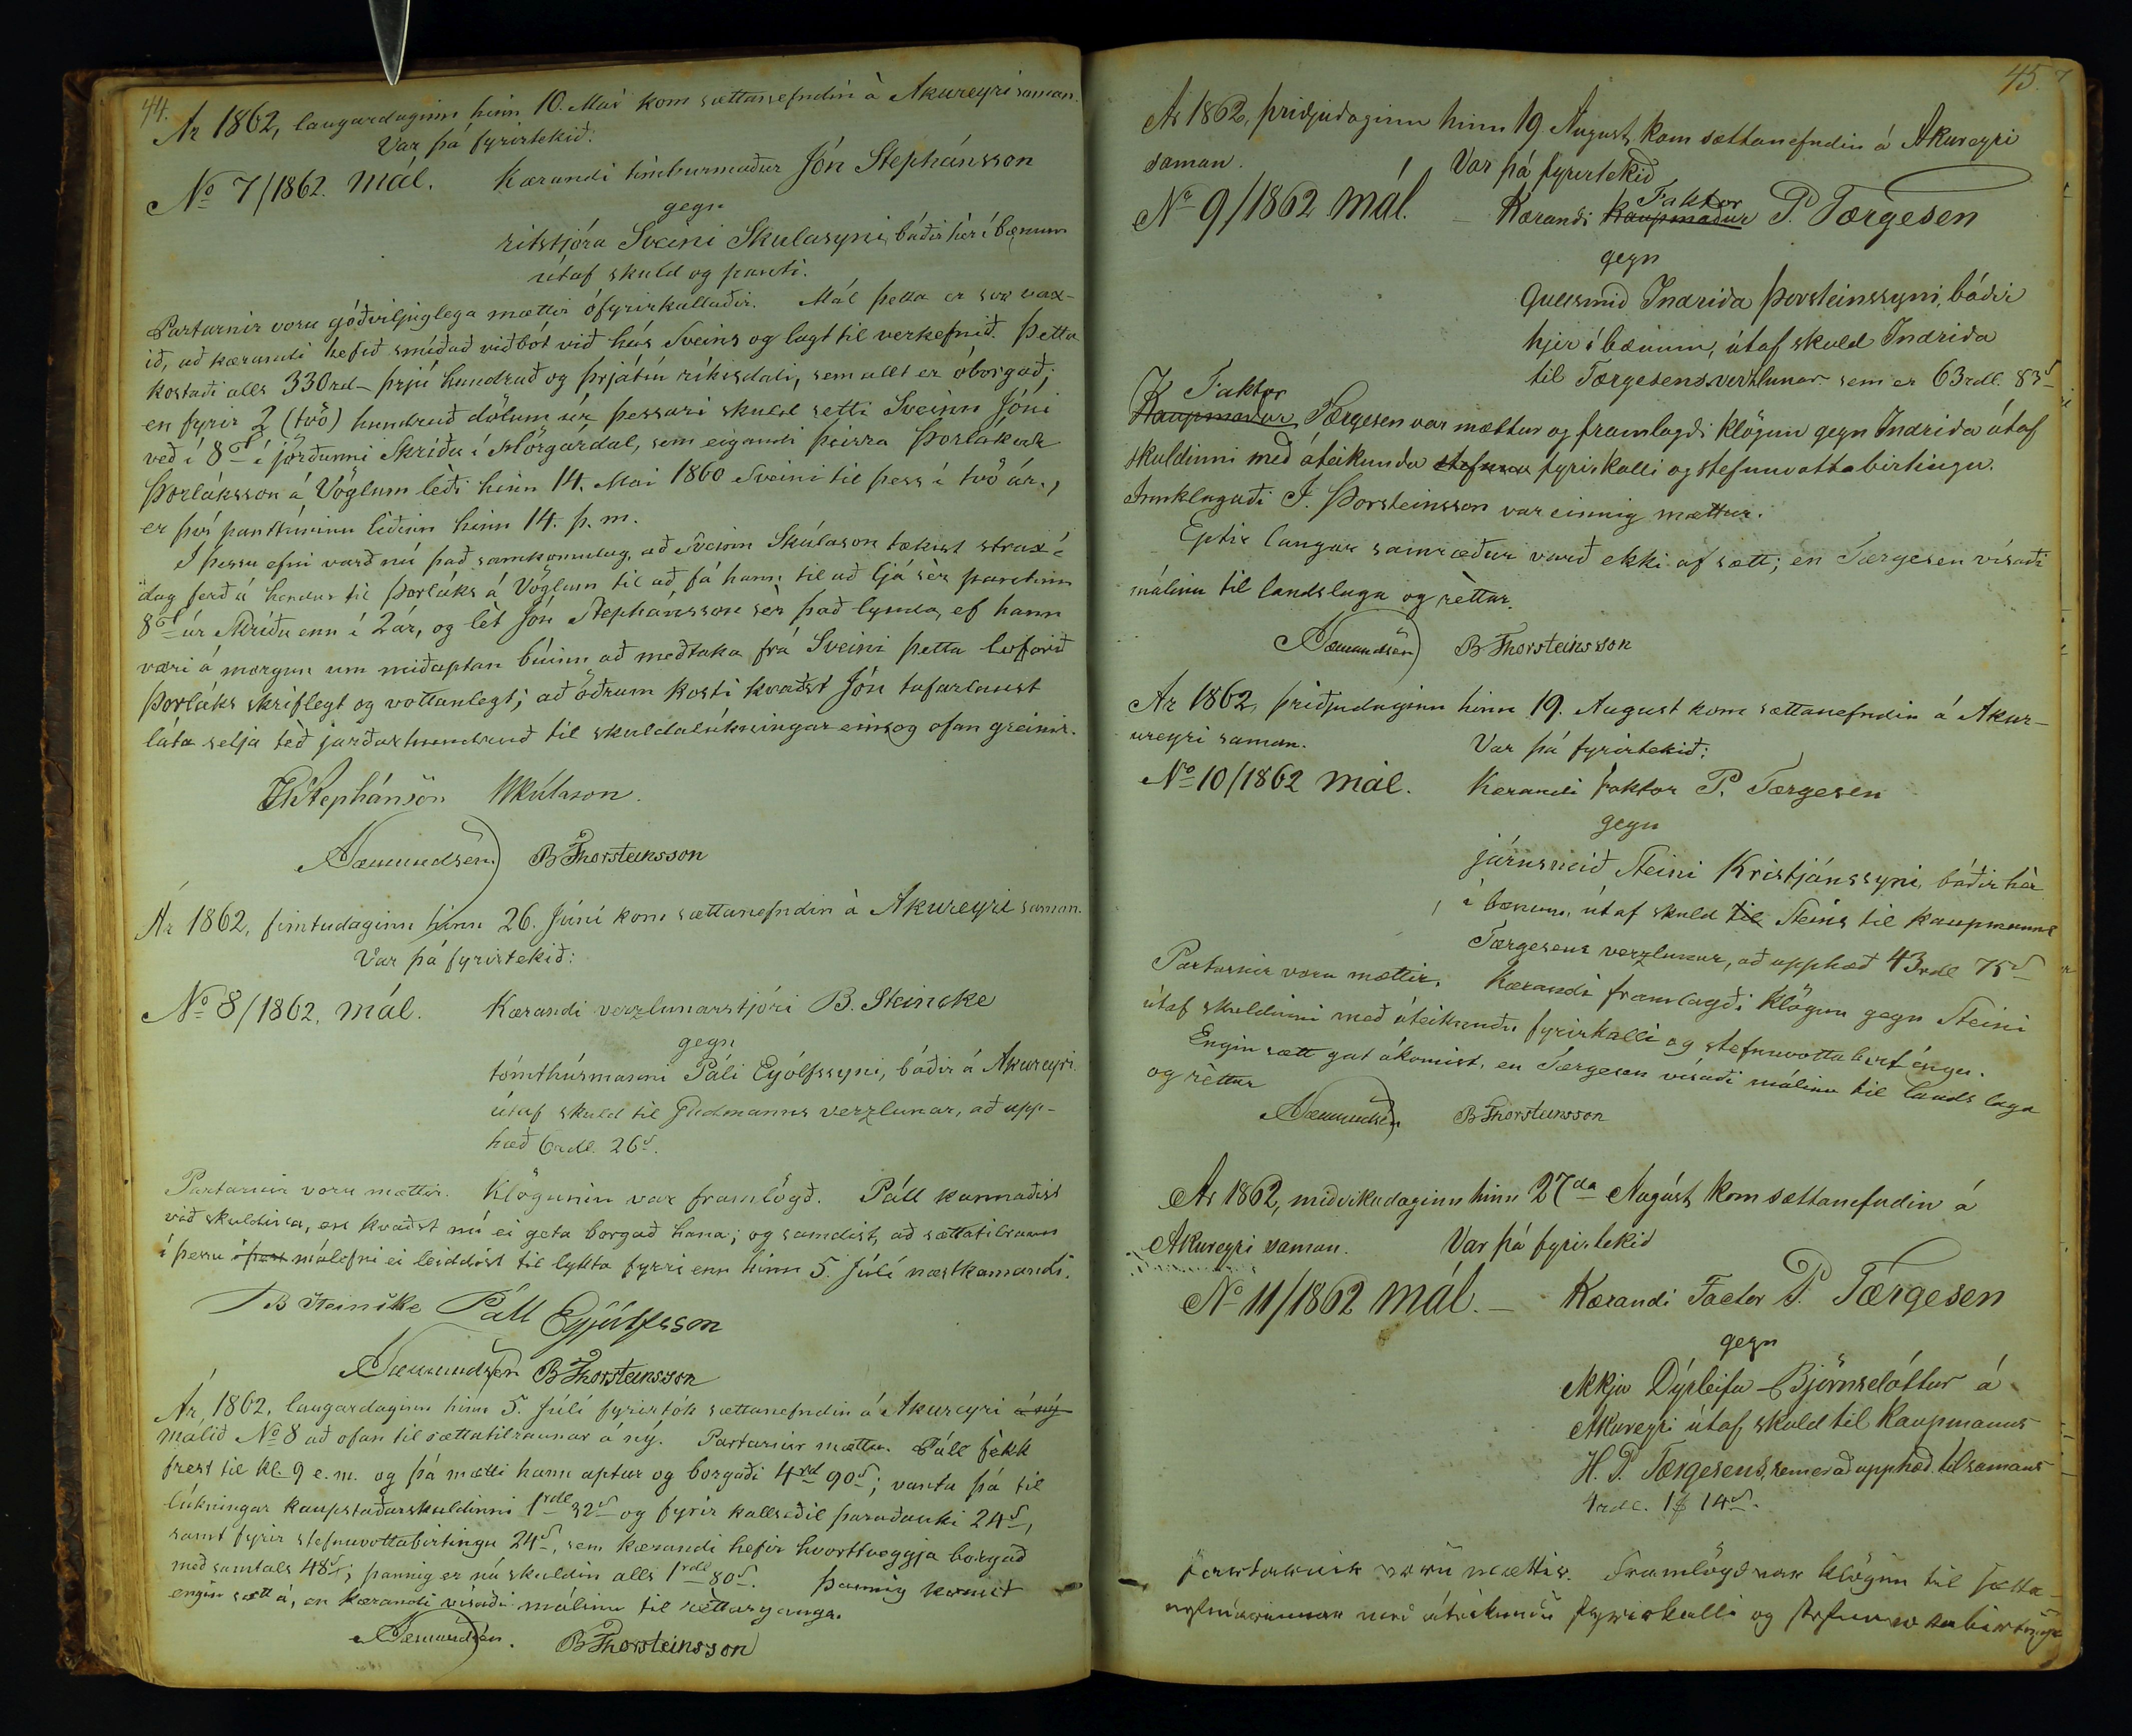 44.
Ár 1862, laugardaginn hinn 10. Mai kom sættanefndin à Akureyri saman.
Var þá fyrirtekið:
No 7/1862. mál. Kærandi timburmaður Jón Stephánsson
gegn
ritstjóra Sveini Skulasyni, báðir hèr í bænum
útaf skuld og panti.
Partarnir voru góðviljuglega mættir ófyrirkallaðir. Mál þetta er svo vax-
ið, að kærandi hefið smíðað viðbót við hús Sveins og lagt til verkefnið. Þetta
kostaði alls 330 rd - þrjú hundruð og þrjátíu ríkisdali, sem allt er óborgað;
en fyrir 2 (tvö) hundruð dölum úr þessari skuld setti Sveinn Jóni
veð í 8 í jörðunni Skriðu í Hörgárdal, sem eigandi þeirra Þorlákur
Þorláksson á Vöglum lèði hinn 14. Mai 1860 Sveini til þess í tvö ár,
er því panttíminn liðinn hinn 14. þ. m.
Í þessu efni varð nú það samkomulag, að Sveinn Skúlason tækist strax í
dag ferð á hendur til Þorláks á Vöglum til að fá hann til að ljá sèr pantinn
8 úr Skriðu enn í 2 ár, og lèt Jón Stephánsson sèr það lynda, ef hann
væri á morgun um miðaptan búinn að meðtaka frá Sveini þetta loforð
Þorláks skriflegt og vottanlegt; að öðrum kosti kvaðst Jón tafarlaust
láta selja tèð jarðarhundruð til skuldalúkningar einsog ofan greinir.
JStephánsön SSkúlason.
ASæmundsen BThorsteinsson
Ár 1862, fimtudaginn hinn 26. Júní kom sættanefndin à Akureyri saman.
Var þá fyrirtekið:
No 8/1862. mál. Kærandi verzlunarstjóri B. Steincke
gegn
tómthúsmanni Páli Eyólfssyni, báðir á Akureyri
útaf skuld til Gudmanns verzlunar, að upp-
hæð 6 rdl. 26 s.
Partarnir voru mættir. Klögunin var framlögð. Páll kannaðist
við skuldina, en kvaðst nú ei geta borgað hana; og samdist, að sættatilraun
í þessu í þess málefni ei leiddist til lykta fyrri enn hinn 5. Júlí næstkomandi.
B Steincke Páll Eyjólfsson
ASæmundsen BThorsteinsson
Ár 1862, laugardaginn hinn 5. Júlí fyrirtók sættanefndin á Akureyri á ný
málið No 8 að ofan til sættatilraunar á ný. Partarnir mættu. Páll fèkk
frest til kl. 9 e.m. og þá mætti hann aptur og borgaði 4 rd 90 s; vantu þá til
lúkningar kaupstaðarskuldinni 1 rdl 32 s og fyrir kallseðil þaraðauki 24 s,
samt fyrir stefnuvottabirtingu 24 s, sem kærandi hefir hvorttveggja borgað
með samtals 48 s; þannig er nú skuldin alls 1 rdl 80 s. Þannig komst
engin sætt á, en kærandi vísaði málinu til rèttargangs.
ASæmundsen. BThorsteinsson
45.
Ár 1862, þriðjudaginn hinn 19 August, kom sættanefndin á Akureyri
saman. Var þá fyrirtekið
Faktor
No 9/1862 mál. - Kærandi Kaupmaður P. Tærgesen
gegn
Gullsmið Indriða Þorsteinssyni, báðir
hjer í bænum, útaf skuld Indriða
til Tærgesensverzlunar sem er 63 rdl. 83 s
Faktor
Kaupmaður Tærgesen var mættur og framlagði klögun gegn Indriða útaf
skuldinni með áteiknuða stefnuv fyrirkalli og stefnuvottabirtingu.
Innklagaði I. Þorsteinsson var einnig mættur.
Eptir langar samræður varð ekki af sætt; en Tærgesen vísaði
málinu til landslaga og rèttar.
ASæmundsen BThorsteinsson
Ár 1862, þriðjudaginn hinn 19. August kom sættanefndin á Akur-
ureyri saman. Var þá fyrirtekið:
No 10/1862 mál. Kærandi faktor P. Tærgesen
gegn
járnsmið Steini Kristjánssyni, báðir hèr
í bænum, útaf skuld til Steins til kaupmanns
Tærgesens verzlunar, að upphæð 43 rdl 75 s
Partarnir voru mættir. Kærandi framlagði klögun gegn Steini
útaf skuldinni með áteiknuðu fyrirkalli og stefnuvottabirtingu.
Engin sætt gat ákomist, en Tærgesen vísaði málinu til lands laga
og rèttar
ASæmundsen BThorsteinsson
Ár 1862, miðvikudaginn hinn 27da Augúst, kom sættanefndin á
Akureyri saman. Var þá fyrirtekið
No 11/1862 mál. - Kærandi Factor P. Tærgesen
gegn
ekkju Dýrleifu Björnsdóttur á
Akureyri útaf skuld til Kaupmanns
H. P. Tærgesens, sem er að upphæð til samans
4 rdl. 1 14 s.
Partarnir voru mættir. Framlögð var klögun til sætta-
nefndarinnar með áteiknuðu fyrirkalli og